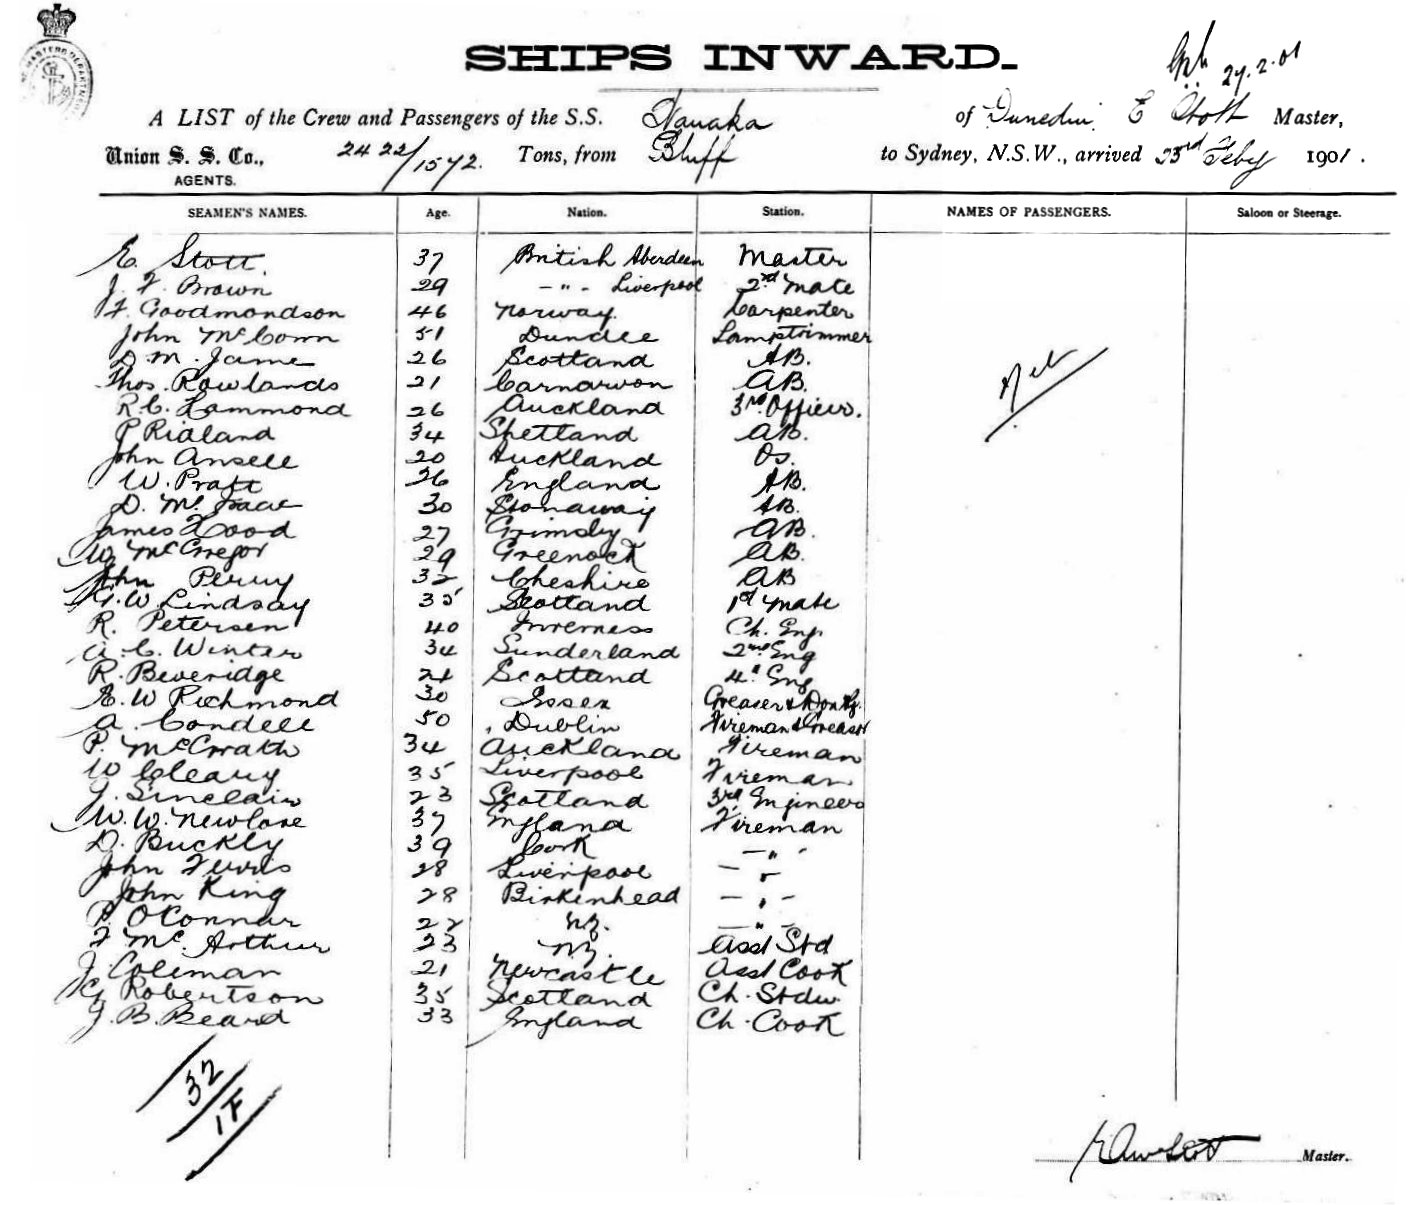 SHIPS INWARD.
27.2.01
A LIST of the Crew and Passengers of the S.S. Wanaka of Dunedin E Stott Master,
Union S. S. Co., 2422/1572. Tons, from Bluff to Sydney, N.S.W., arrived 23rd Feby 1901.
AGENTS.
SEAMEN'S NAMES. Age. Nation. Station. NAMES OF PASSENGERS. Saloon or Steerage.
E. Stott. 37 British Aberdeen Master
J. F. Brown 29 -"- Liverpool 2nd Mate
F. Goodmondson 46 Norway. Carpenter
John McCown 51 Dundee Lamptrimmer
D. M. Jame 26 Scotland AB.
Thos. Rowlands 21 Carnarvon AB.
R. C. Hammond 26 Auckland 3rd Officer.
P Rialand 34 Shetland AB.
John Ansell 20 Auckland Os.
W. Pratt 26 England AB.
D. McIsaac 30 Stonaway AB.
James Hood 27 Grimsby AB.
W McGregor 29 Greenock AB.
John Perry 32 Cheshire AB
G. W. Lindsay 35 Scotland 1st Mate
R. Petersen 40 Inverness Ch. Eng.
A. C. Winter 34 Sunderland 2nd Eng
R. Beveridge 21 Scotland 4th Eng
E. W Richmond 30 Essex Greaser &
A. Condell 50 Dublin Fireman & Greaser
P. McGrath 34 Auckland Fireman
W Cleary 35 Liverpool Fireman
J. Sinclair 23 Scotland 3rd Engineer
W. W. Newlove 37 England Fireman
D. Buckly 39 Cork -"-
John Ferris 28 Liverpool -"-
John King 28 Birkenhead -"-
P. O'Connar 22 NZ. -"-
F McArthur 23 NZ. Asst Std
J Coleman 21 Newcastle Asst Cook
G Robertson 35 Scotland Ch. Stdw.
J. B. Beard 33 England Ch. Cook
Nil
32
1F
Stott Master.